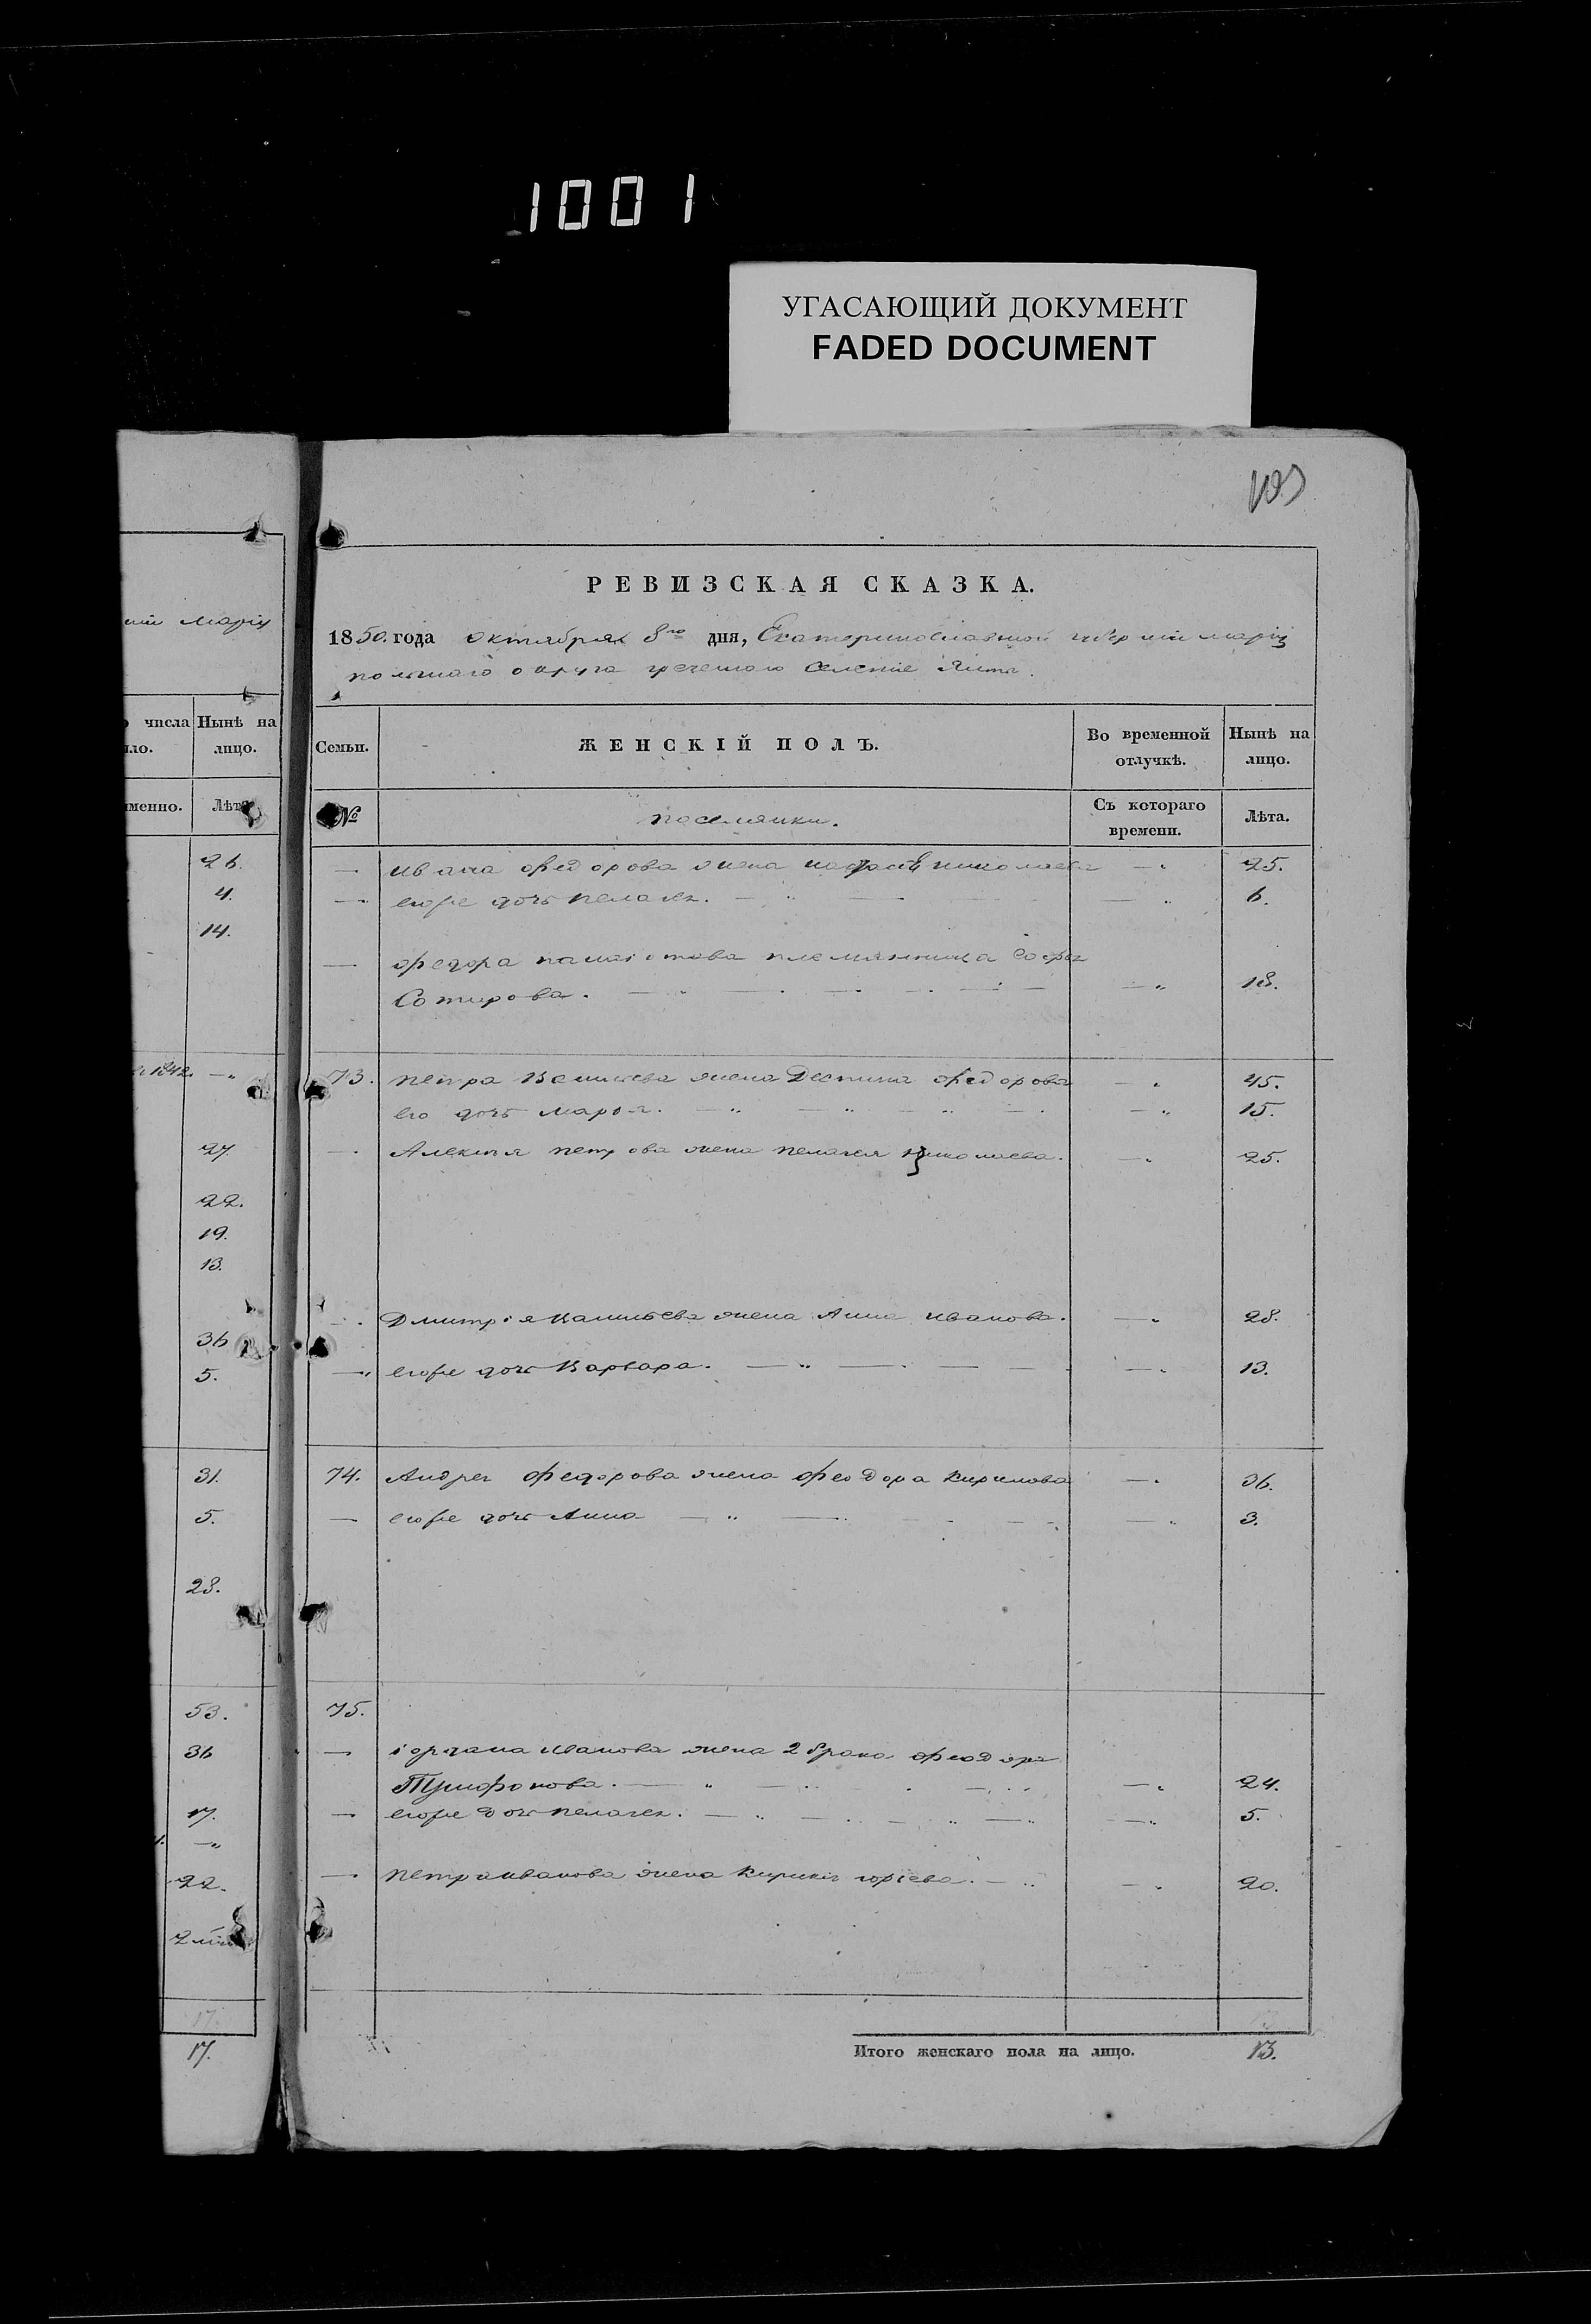 1001
УГАСАЮЩИЙ ДОКУМЕНТ
FADED DOCUMENT
103
РЕВИЗСКАЯ СКАЗКА.
1850. года октября 8го дня, Екатеринославской губерніи маріу
польскаго округа греческаго селеніе Ялта.
ніи маріу
числа
Нынѣ на лицо.
ло.
именно.
Лѣта
26.
4.
14.
1842. — „
27
22.
19.
13.
36
5.
31.
5.
28.
53.
36
17.
— „
22.
17.
17.
Семьи.
ЖЕНСКІЙ ПОЛЪ.
Во временной отлучкѣ.
Нынѣ на лицо.
№
поселянки.
Съ котораго времени.
Лѣта.
— Ивана Федорова жена николаева — „ 25.
— его же дочь пелагея. — „ 6.
— Федора панаіотова племянница Софья
Сотирова. — „ 18.
73. петра Васильева жена Деспина Федорова — „ 45.
его дочь марья. — „ 15.
— Алексѣя петрова жена пелагея николаева. — „ 25.
— Дмитрія Васильева жена Анна Иванова. — „ 28.
— „ его же дочь Варвара. — „ 13.
74. Андрея Федорова жена Феодора Кирилова — „ 36.
— его же дочь Анна — „ 3.
75.
— іордана Иванова жена 2 брака Феодора
Трифонова. — „ 24.
— его же дочь пелагея. — „ 5.
— петра иванова жена юріева. — „ 20.
Итого женскаго пола на лицо. 13.